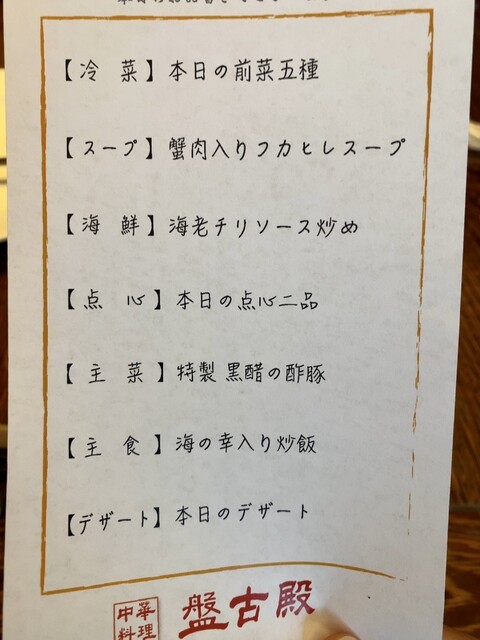 【冷 菜】本日の前菜五種
【スープ】蟹肉入りフカヒレスープ
【海 鮮】海老チリソース炒め
【点 心】本日の点心二品
【主 菜】特製 黒醋の酢豚
【主 食】海の幸入り炒飯
【デザート】本日のデザート
中華料理 盤古殿